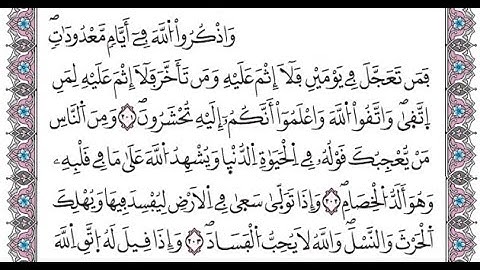 وَاذْكُرُواْ اللَّهَ فِےٓ أَيَّامٖ مَّعْدُودَاتٖۖ
فَمَن تَعَجَّلَ فِے يَوْمَيْنِ فَلَآ إِثْمَ عَلَيْهِ وَمَن تَأَخَّرَ فَلَآ إِثْمَ عَلَيْهِ لِمَنِ
اِتَّقىٰۖ وَاتَّقُواْ اللَّهَ وَاعْلَمُوٓاْ أَنَّكُمُۥٓ إِلَيْهِ تُحْشَرُونَۖ ٢٠١ وَمِنَ النَّاسِ
مَنْ يُّعْجِبُكَ قَوْلُهُۥ فِے اِلْحَيَوٰةِ اِلدُّنْيا وَيُشْهِدُ اللَّهَ عَلَىٰ مَا فِے قَلْبِهِۦ
وَهُوَ أَلَدُّ الْخِصَامِۖ ٢٠٢ وَإِذَا تَوَلّىٰ سَعىٰ فِے اِلَارْضِ لِيُفْسِدَ فِيهَا وَيُهْلِكَ
اَلْحَرْثَ وَالنَّسْلَۖ وَاللَّهُ لَا يُحِبُّ الْفَسَادَۖ ٢٠٣ وَإِذَا قِيلَ لَهُ اتَّقِ اللَّهَ